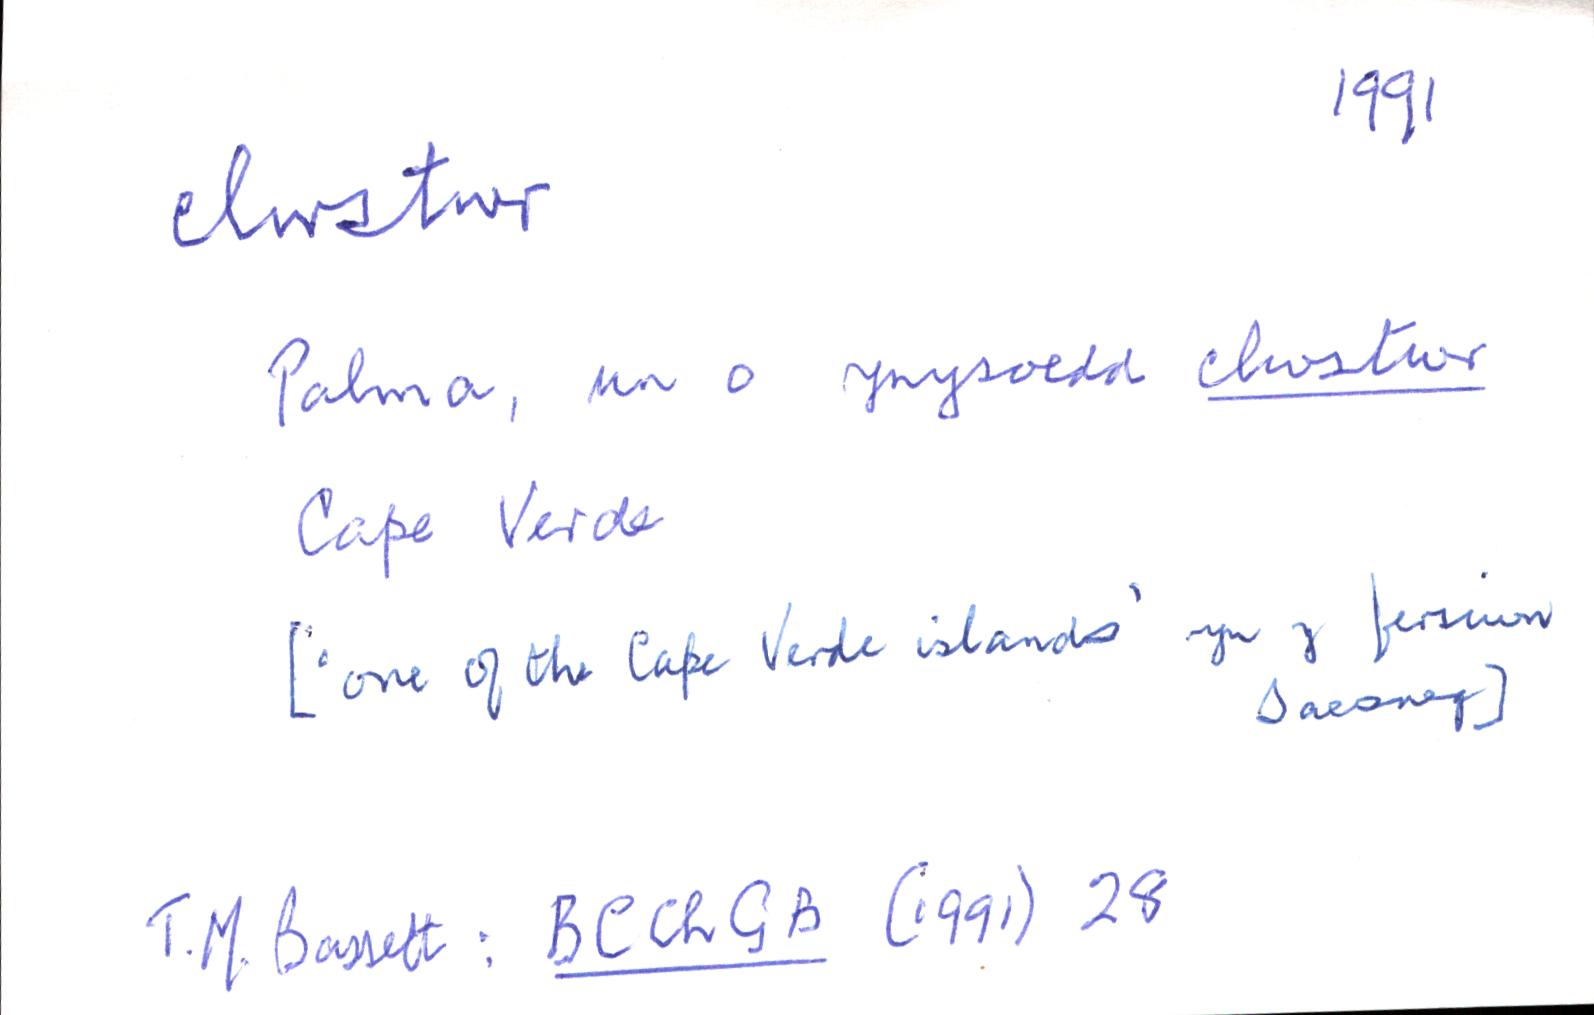 1991
clwstwr
Palma, un o ynysoedd clwstwr
Cape Verde
['one of the Cape Verde islands' yn y fersiwn
Saesneg]
T.M. Bassett: BCChGB (1991) 28